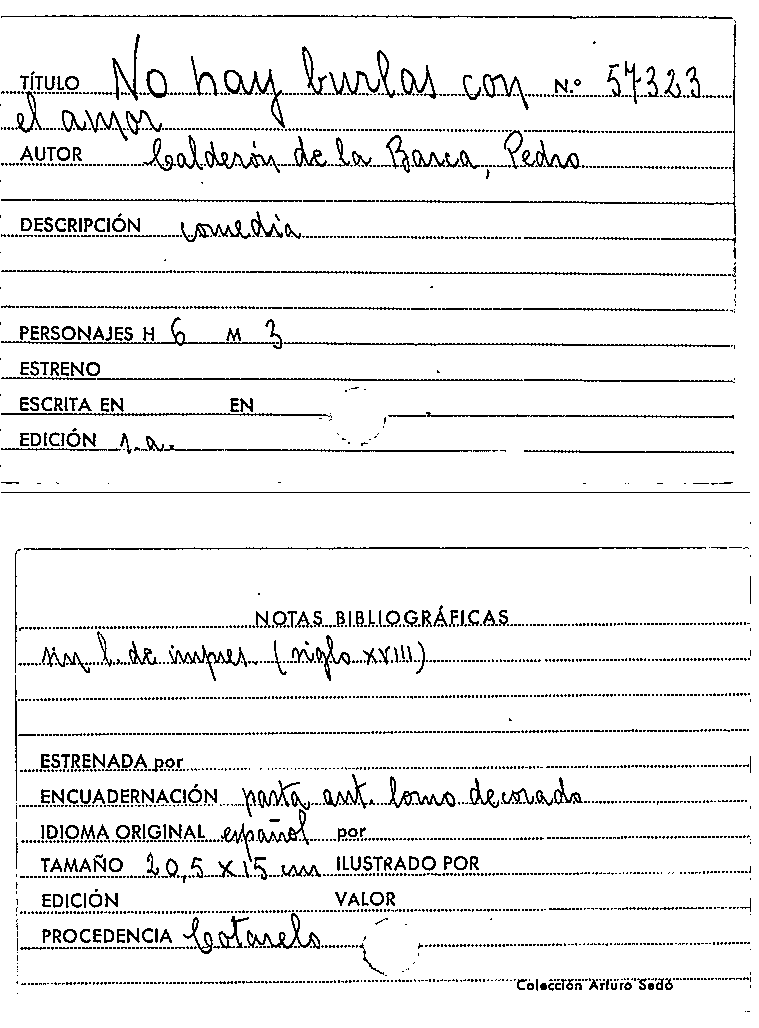 TÍTULO No hay burlas con N.º 57323
el amor
AUTOR Calderón de la Barca, Pedro
DESCRIPCIÓN comedia
PERSONAJES H 6 M 3
ESTRENO
ESCRITA EN EN
EDICIÓN s.a.
NOTAS BIBLIOGRÁFICAS
sin l. de impres. (siglo XVIII)
ESTRENADA por
ENCUADERNACIÓN pasta ant. lomo decorado
IDIOMA ORIGINAL español por
TAMAÑO 20,5 x 15 cm ILUSTRADO POR
EDICIÓN VALOR
PROCEDENCIA Cotarelo
Colección Arturo Sedó